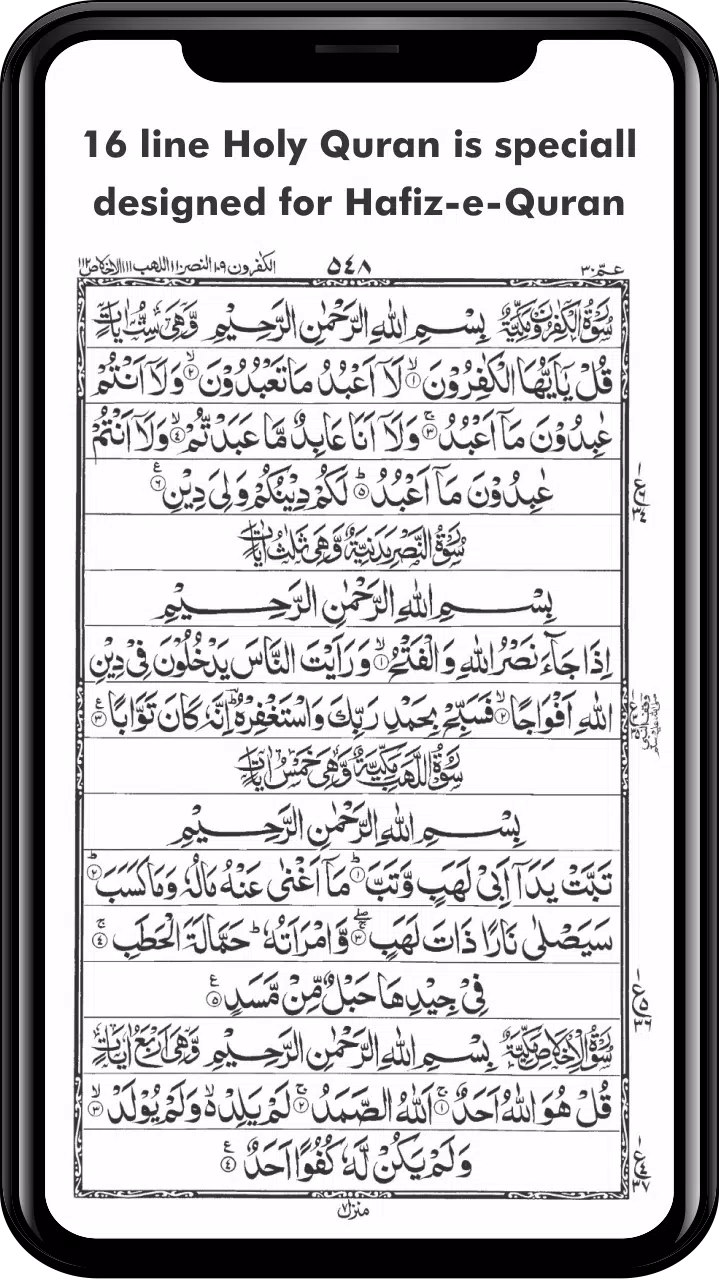 16 line Holy Quran is speciall
designed for Hafiz-e-Quran
عمّ ٣٠
٥٤٨
الكفرون ١٠٩ النصر ١١٠ اللهب ١١١ الاخلاص ١١٢
سُوْرَةُ الْكٰفِرُوْنَ مَكِّيَّةٌ بِسْمِ اللهِ الرَّحْمٰنِ الرَّحِيْمِ وَّهِيَ سِتُّ اٰيَاتٍ
قُلْ يٰۤاَيُّهَا الْكٰفِرُوْنَ ۙ﴿١﴾ لَاۤ اَعْبُدُ مَا تَعْبُدُوْنَ ۙ﴿٢﴾ وَلَاۤ اَنْتُمْ
عٰبِدُوْنَ مَاۤ اَعْبُدُ ۚ﴿٣﴾ وَلَاۤ اَنَا عَابِدٌ مَّا عَبَدْتُّمْ ۙ﴿٤﴾ وَلَاۤ اَنْتُمْ
عٰبِدُوْنَ مَاۤ اَعْبُدُ ؕ﴿٥﴾ لَكُمْ دِيْنُكُمْ وَلِيَ دِيْنِ ﴿٦﴾ ع
سُوْرَةُ النَّصْرِ مَدَنِيَّةٌ وَّهِيَ ثَلٰثُ اٰيَاتٍ
بِسْمِ اللهِ الرَّحْمٰنِ الرَّحِيْمِ
اِذَا جَآءَ نَصْرُ اللهِ وَالْفَتْحُ ۙ﴿١﴾ وَرَاَيْتَ النَّاسَ يَدْخُلُوْنَ فِيْ دِيْنِ
اللهِ اَفْوَاجًا ۙ﴿٢﴾ فَسَبِّحْ بِحَمْدِ رَبِّكَ وَاسْتَغْفِرْهُ ؕ اِنَّهٗ كَانَ تَوَّابًا ﴿٣﴾ ع
سُوْرَةُ اللَّهَبِ مَكِّيَّةٌ وَّهِيَ خَمْسُ اٰيَاتٍ
بِسْمِ اللهِ الرَّحْمٰنِ الرَّحِيْمِ
تَبَّتْ يَدَاۤ اَبِيْ لَهَبٍ وَّتَبَّ ؕ﴿١﴾ مَاۤ اَغْنٰى عَنْهُ مَالُهٗ وَمَا كَسَبَ ؕ﴿٢﴾
سَيَصْلٰى نَارًا ذَاتَ لَهَبٍ ۚۖ﴿٣﴾ وَّامْرَاَتُهٗ ؕ حَمَّالَةَ الْحَطَبِ ۚ﴿٤﴾
فِيْ جِيْدِهَا حَبْلٌ مِّنْ مَّسَدٍ ﴿٥﴾ ع
سُوْرَةُ الْاِخْلَاصِ مَكِّيَّةٌ بِسْمِ اللهِ الرَّحْمٰنِ الرَّحِيْمِ وَّهِيَ اَرْبَعُ اٰيَاتٍ
قُلْ هُوَ اللهُ اَحَدٌ ۚ﴿١﴾ اَللهُ الصَّمَدُ ۚ﴿٢﴾ لَمْ يَلِدْ ۙ۬ وَلَمْ يُوْلَدْ ۙ﴿٣﴾
وَلَمْ يَكُنْ لَّهٗ كُفُوًا اَحَدٌ ﴿٤﴾ ع
منزل ٧